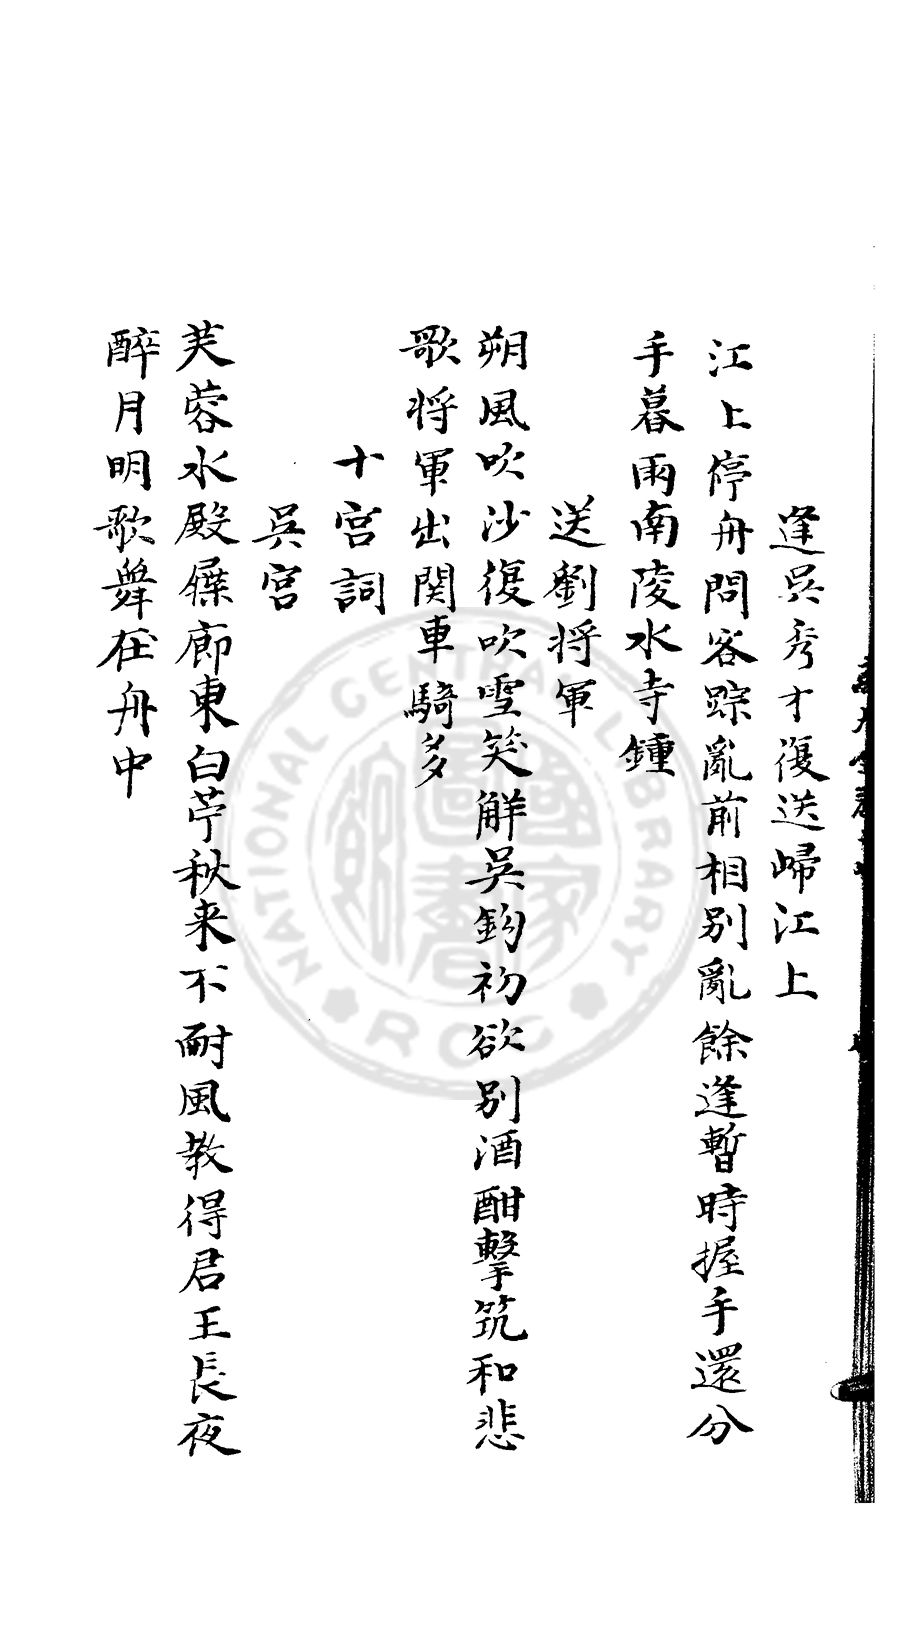 逢吳秀才復送歸江上
江上停舟問客踪亂前相別亂餘逢暫時握手還分
手暮雨南陵水寺鍾
送劉将軍
朔風吹沙復吹雪笑解吳鈎初欲別酒酣擊筑和悲
歌将軍出関車騎多
十宮詞
吳宮
芙蓉水殿屧廊東白苧秋来不耐風教得君王長夜
醉月明歌舞在舟中
NATIONAL CENTRAL LIBRARY
ROC
國家圖書館